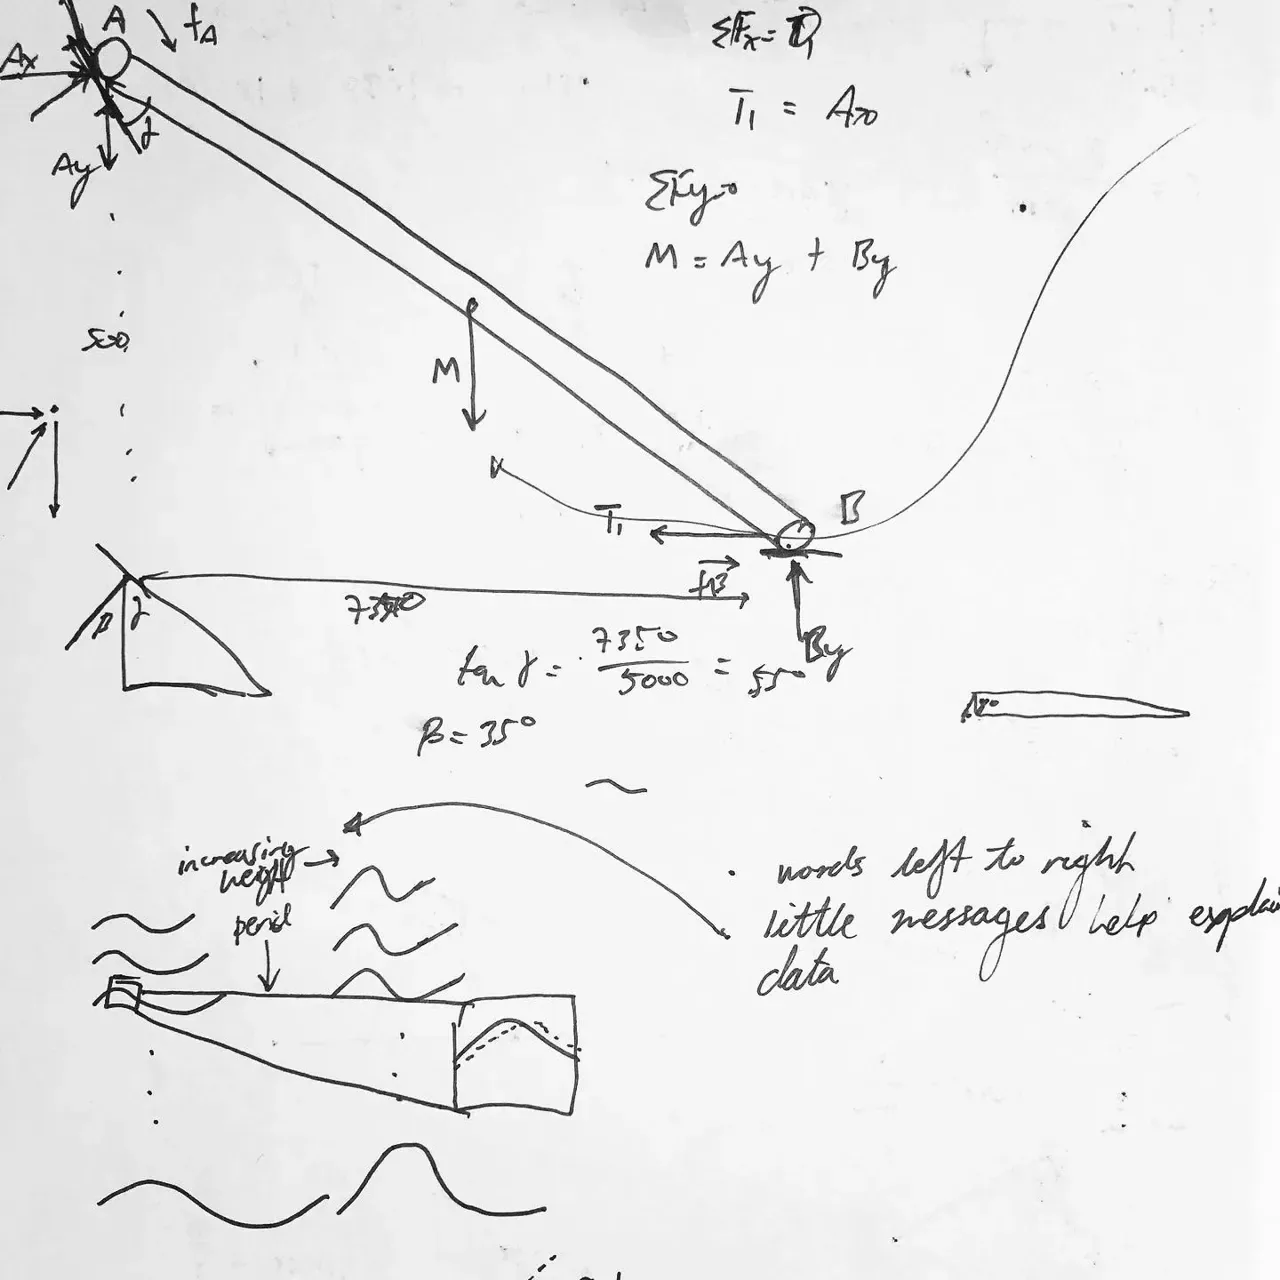 A
fA
Ax
γ
Ay
ΣFx=0
T₁ = Ax
ΣFy=0
M = Ay + By
500
M
T₁
B
fB
By
β γ
7350
tan γ = 7350/5000 = 55°
β = 35°
increasing
height
period
. words left to right
little messages help explain
data